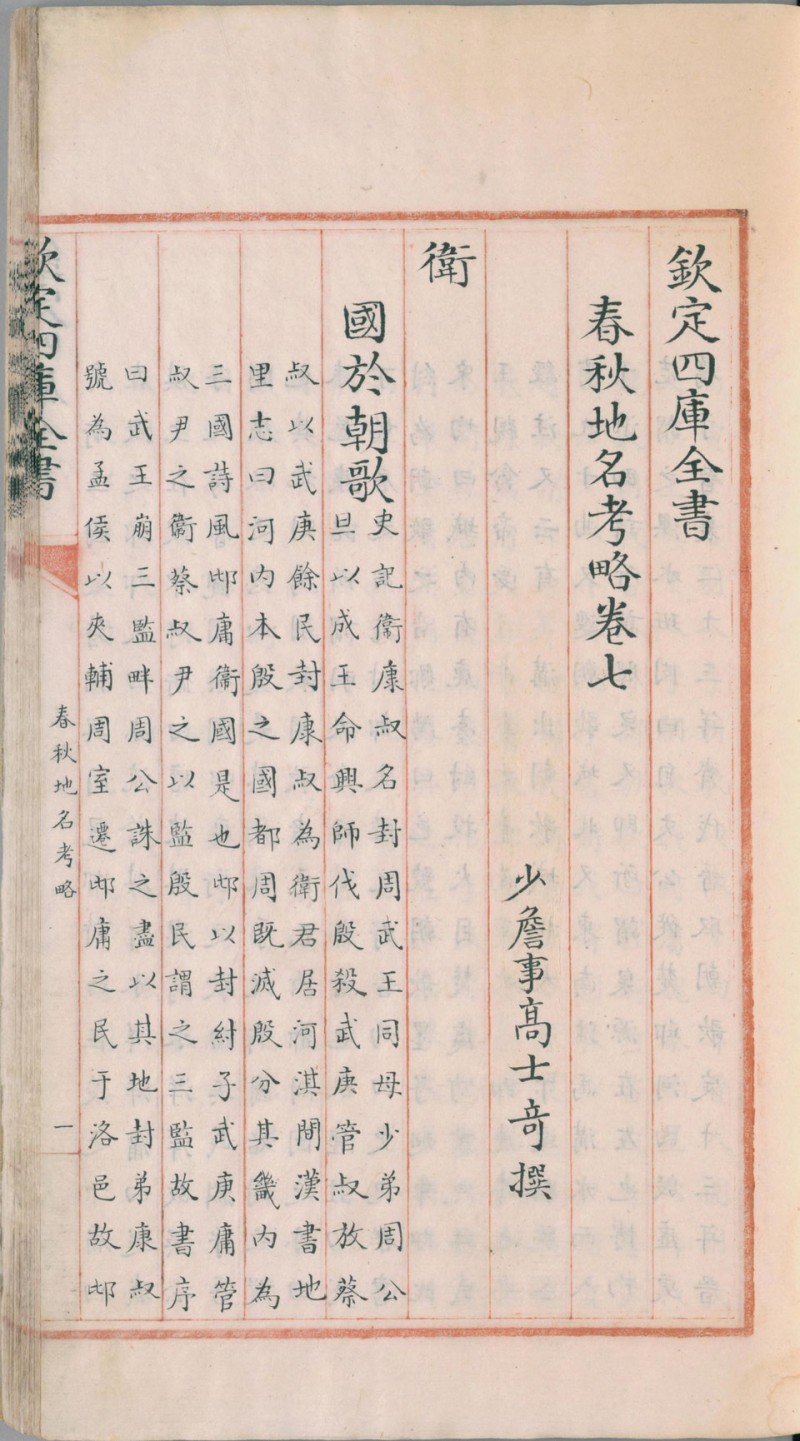 欽定四庫全書
春秋地名考略卷七
少詹事高士竒撰
衛
國於朝歌
史記衛康叔名封周武王同母少弟周公
旦以成王命興師伐殷殺武庚管叔放蔡
叔以武庚餘民封康叔為衛君居河淇間漢書地
里志曰河内本殷之國都周既滅殷分其畿内為
三國詩風邶庸衛國是也邶以封紂子武庚庸管
叔尹之衛蔡叔尹之以監殷民謂之三監故書序
曰武王崩三監畔周公誅之盡以其地封弟康叔
號為孟侯以夾輔周室遷邶庸之民于洛邑故邶
欽定四庫全書
春秋地名考略
一